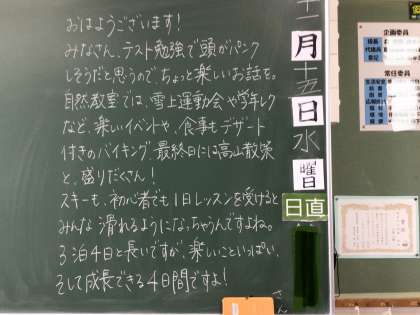 おはようございます!
みなさん、テスト勉強で頭がパンク
しそうだと思うので、ちょっと楽しいお話を。
自然教室では、雪上運動会や学年レク
など、楽しいイベントや、食事もデザート
付きのバイキング、最終日には高山散策
と、盛りだくさん!
スキーも、初心者でも1日レッスンを受けると
みんな滑れるようになっちゃうんですよね。
3泊4日と長いですが、楽しこといっぱい、
そして成長できる4日間ですよ!
十一月十五日水曜日
日直
さん
企画委員
常任委員